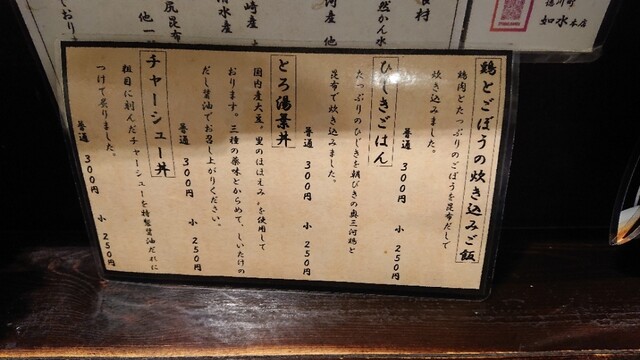 鶏とごぼうの炊き込みご飯
鶏肉とたっぷりのごぼうを昆布だしで
炊き込みました。
普通 300円 小 250円
ひじきごはん
たっぷりのひじきを朝びきの奥三河鶏と
昆布で炊き込みました。
普通 300円 小 250円
とろ湯葉丼
国内産大豆，里のほほえみ，を使用して
おります。三種の薬味とからめて、しいたけの
だし醤油でお召し上がりください。
普通 300円 小 250円
チャーシュー丼
粗目に刻んだチャーシューを特製醤油だれに
つけて炙りました。
普通 300円 小 250円
徳川町
如水本店
食材
然かん水
河産 他
崎産
清水産
尻昆布
他一
ております